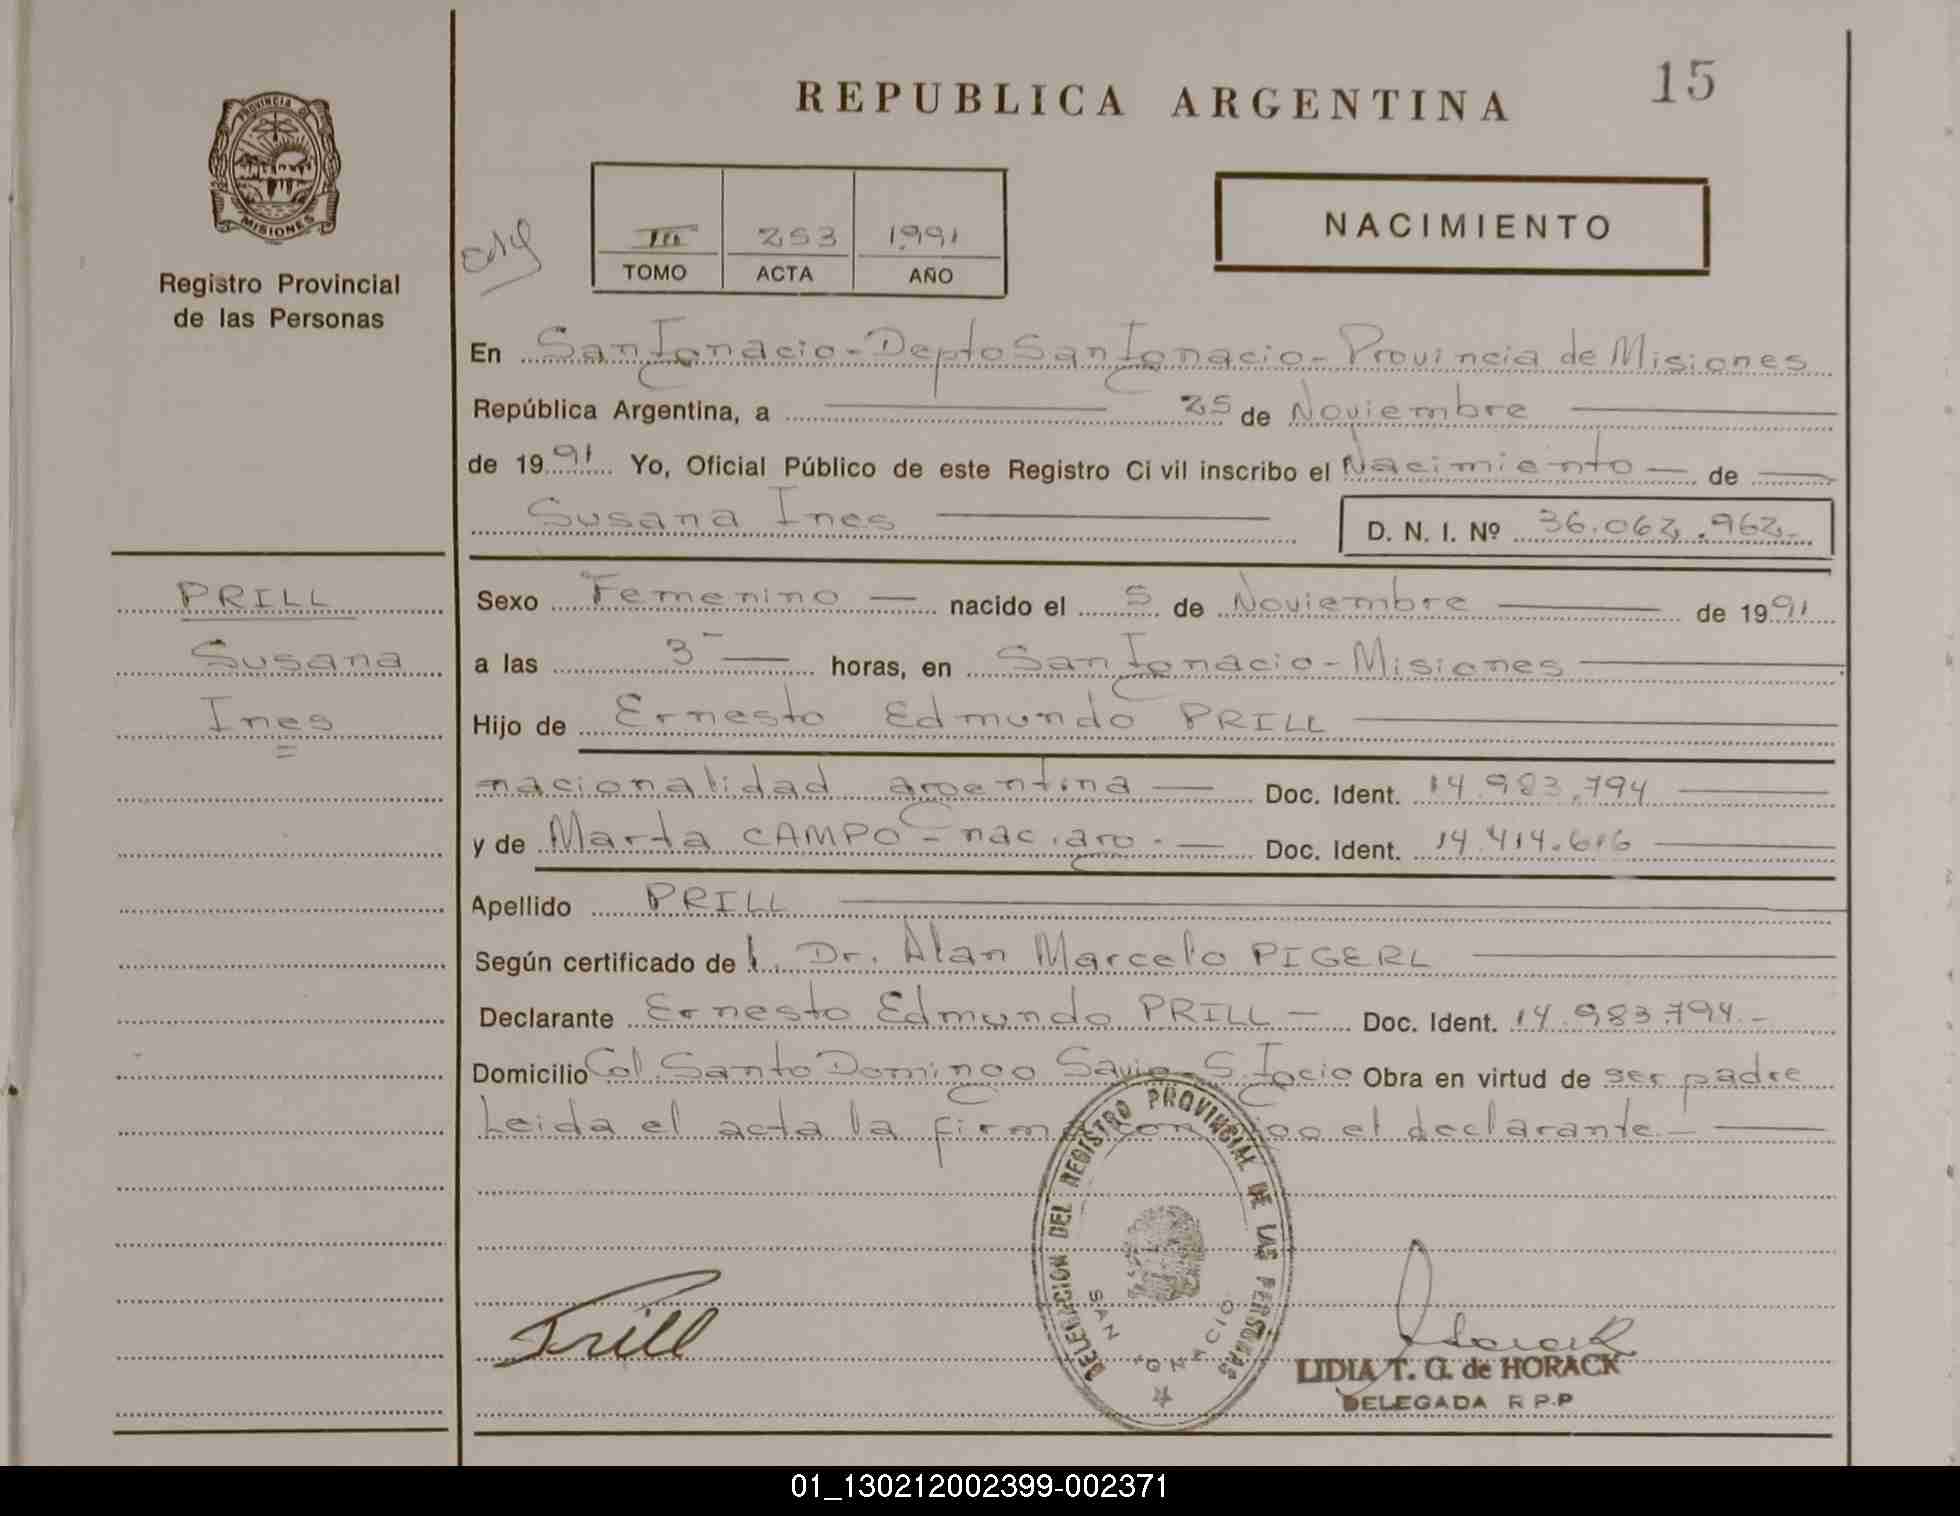 15
REPUBLICA ARGENTINA
PROVINCIA DE
MISIONES
Registro Provincial
de las Personas
III 253 1991
TOMO ACTA AÑO
NACIMIENTO
En San Ignacio - Depto San Ignacio - Provincia de Misiones
República Argentina, a 25 de Noviembre
de 1991 Yo, Oficial Público de este Registro Civil inscribo el Nacimiento — de —
Susana Ines
D. N. I. Nº 36.062.962-
PRILL
Susana
Ines
Sexo Femenino — nacido el 5 de Noviembre — de 1991
a las 3 — horas, en San Ignacio - Misiones
Hijo de Ernesto Edmundo PRILL
nacionalidad argentina — Doc. Ident. 14.983.794
y de Marta CAMPO - nac. arg. — Doc. Ident. 14.414.616
Apellido PRILL
Según certificado de l. Dr. Alan Marcelo PIGERL
Declarante Ernesto Edmundo PRILL — Doc. Ident. 14.983.794.-
Domicilio Col. Santo Domingo Savio - S. Igcio Obra en virtud de ser padre
Leida el acta la firma conmigo el declarante.-
DELEGACION DEL REGISTRO PROVINCIAL DE LAS PERSONAS
SAN IGNACIO
Prill
Horack
LIDIA T. G. de HORACK
DELEGADA R.P.P
01_130212002399-002371